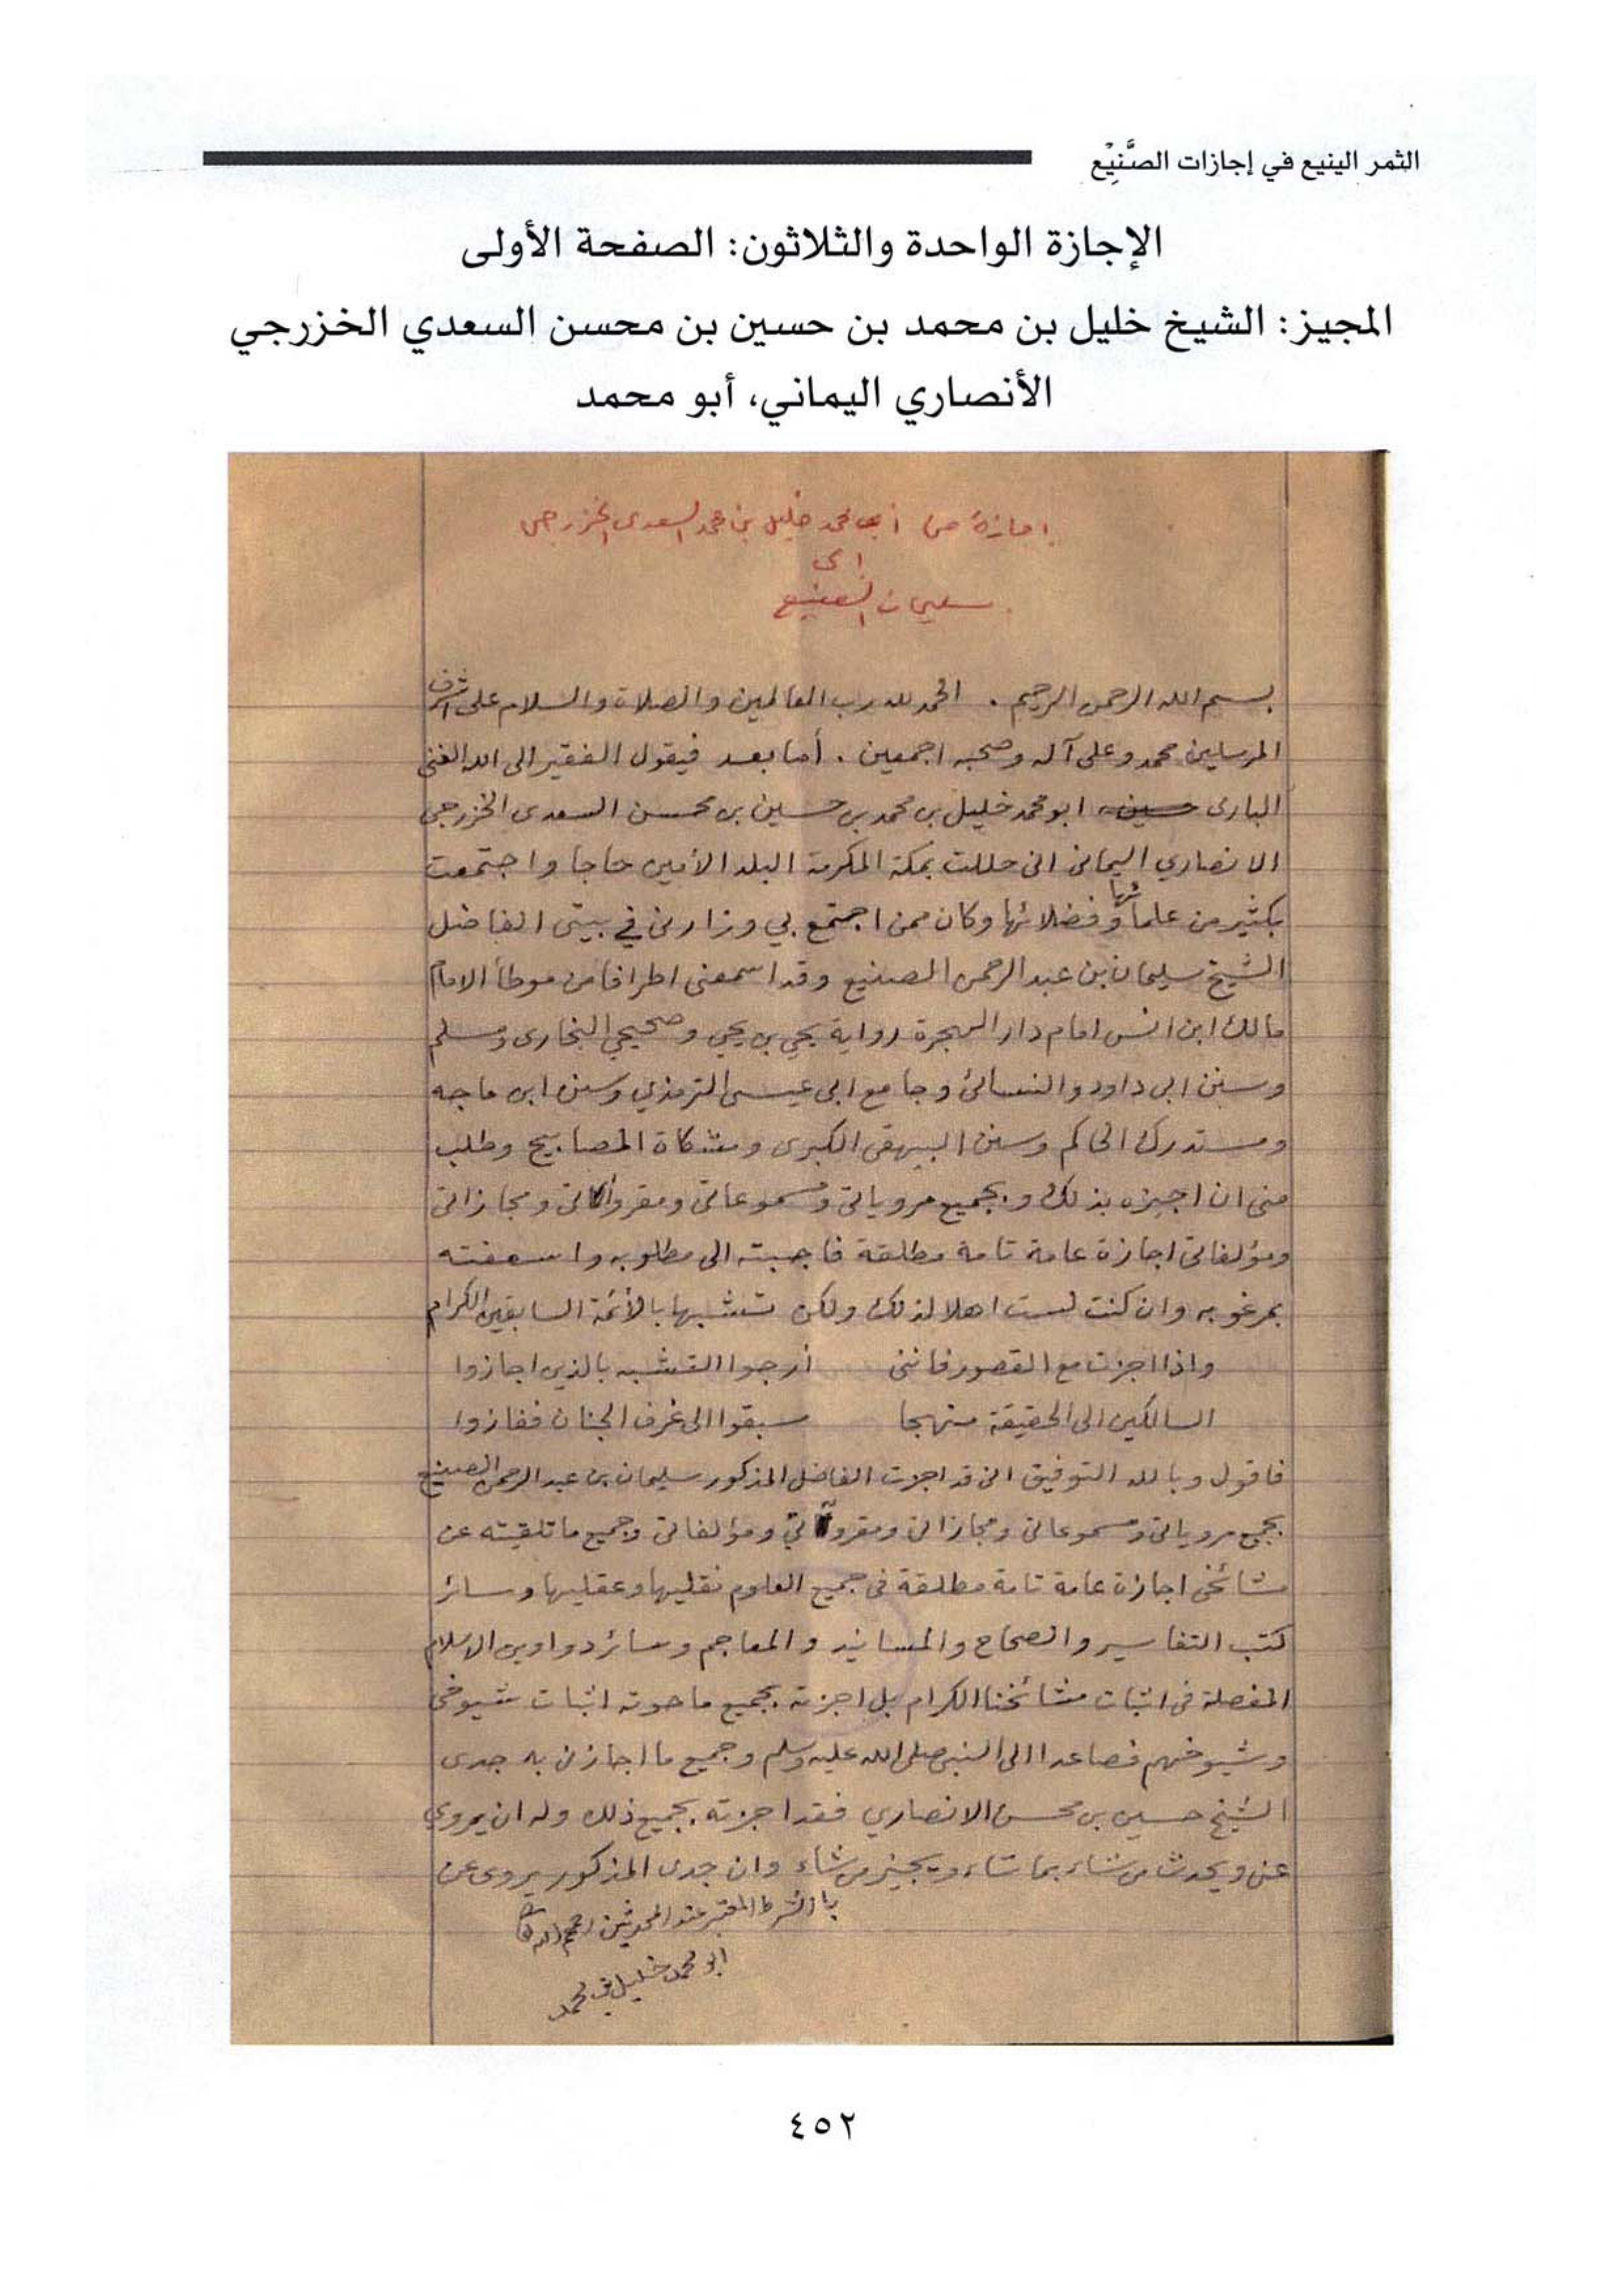 الثمر الينيع في إجازات الصَّنِيْع
الإجازة الواحدة والثلاثون: الصفحة الأولى
المجيز: الشيخ خليل بن محمد بن حسين بن محسن السعدي الخزرجي
الأنصاري اليماني، أبو محمد
اجازة من أبي محمد خليل بن محمد السعدي الخزرجي
الى
سليمان الصنيع
بسم الله الرحمن الرحيم . الحمد لله رب العالمين والصلاة والسلام على اشرف
المرسلين محمد وعلى آله وصحبه اجمعين . أما بعد فيقول الفقير الى الله الغنى
البارى حسين ابو محمد خليل بن محمد بن حسين بن محسن السعدى الخزرجي
الانصاري اليمانى انى حللت بمكة المكرمة البلد الأمين حاجا واجتمعت
بكثير من علمائها وفضلائها وكان ممن اجتمع بي وزارنى في بيتى الفاضل
الشيخ سليمان بن عبد الرحمن الصنيع وقد اسمعنى اطرافا من موطأ الامام
مالك ابن انس امام دار الهجرة رواية يحي بن يحي وصحيحي البخارى ومسلم
وسنن ابى داود والنسائى وجامع ابى عيسى الترمذي وسنن ابن ماجه
ومستدرك الحاكم وسنن البيهقى الكبرى ومشكاة المصابيح وطلب
منى ان اجيزه بذلك وبجميع مروياتى ومسموعاتى ومقروآتى ومجازاتى
ومؤلفاتى اجازة عامة تامة مطلقة فاجبته الى مطلوبه واسعفته
بمرغوبه وان كنت لست اهلا لذلك ولكن تشبها بالأئمة السابقين الكرام
واذا اجزت مع القصور فاننى أرجوا التشبه بالذين اجازوا
السالكين الى الحقيقة منهجا سبقوا الى غرف الجنان ففازوا
فاقول وبالله التوفيق انى قد اجزت الفاضل المذكور سليمان بن عبد الرحمن الصنيع
بجميع مروياتى ومسموعاتى ومجازاتى ومقروآتي ومؤلفاتى وجميع ما تلقيته عن
مشائخى اجازة عامة تامة مطلقة فى جميع العلوم نقليها وعقليها وسائر
كتب التفاسير والصحاح والمسانيد والمعاجم وسائر دواوين الاسلام
المفصلة فى اثبات مشائخنا الكرام بل اجزته بجميع ما حوته اثبات شيوخى
وشيوخهم فصاعدا الى النبى صلى الله عليه وسلم وجميع ما اجازنى به جدى
الشيخ حسين بن محسن الانصاري فقد اجزته بجميع ذلك وله ان يروي
عنى ويحدث من شاء بما شاء ويجيز من شاء وان جدى المذكور يروى عن
بالشرط المعتبر عند المحدثين رحمهم الله
ابو محمد خليل بن محمد
٤٥٢